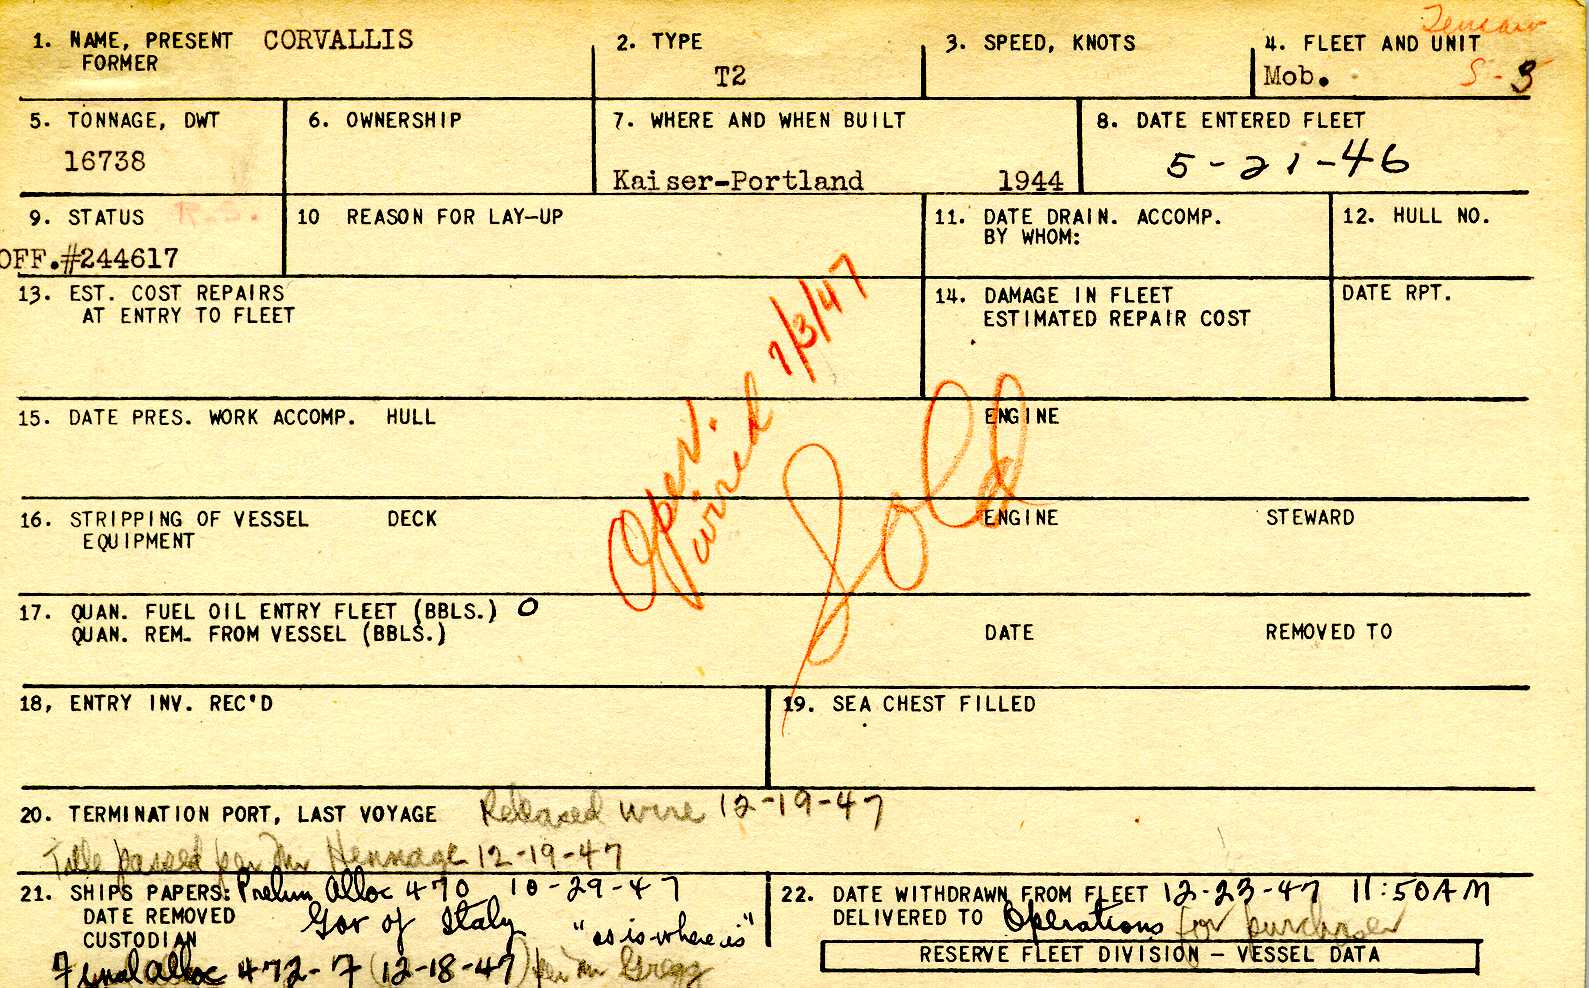 1. NAME, PRESENT CORVALLIS
FORMER
2. TYPE
T2
3. SPEED, KNOTS
4. FLEET AND UNIT
Mob. S-3
5. TONNAGE, DWT
16738
6. OWNERSHIP
7. WHERE AND WHEN BUILT
Kaiser-Portland 1944
8. DATE ENTERED FLEET
5-21-46
9. STATUS R.S.
OFF.#244617
10 REASON FOR LAY-UP
11. DATE DRAIN. ACCOMP.
BY WHOM:
12. HULL NO.
13. EST. COST REPAIRS
AT ENTRY TO FLEET
14. DAMAGE IN FLEET
ESTIMATED REPAIR COST
DATE RPT.
Oper.
wired 7/3/47
Sold
15. DATE PRES. WORK ACCOMP. HULL ENGINE
16. STRIPPING OF VESSEL DECK ENGINE STEWARD
EQUIPMENT
17. QUAN. FUEL OIL ENTRY FLEET (BBLS.) 0
QUAN. REM. FROM VESSEL (BBLS.) DATE REMOVED TO
18, ENTRY INV. REC'D
19. SEA CHEST FILLED
20. TERMINATION PORT, LAST VOYAGE Released wire 12-19-47
Title passed per Mr Hennage 12-19-47
21. SHIPS PAPERS: Prelim Alloc 470 10-29-47
DATE REMOVED Gov of Italy
CUSTODIAN "as is-where is"
Final alloc 472-7 (12-18-47) per Mr Gregg
22. DATE WITHDRAWN FROM FLEET 12-23-47 11:50AM
DELIVERED TO Operations for purchaser
RESERVE FLEET DIVISION - VESSEL DATA